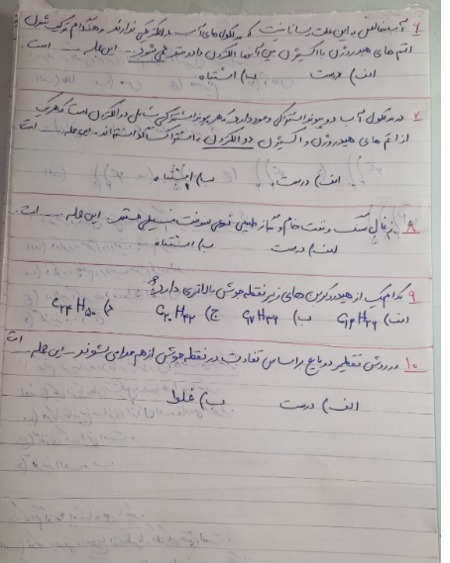 ۶ آب خالص به این علت رسانا نیست که مولکول‌های آب بار الکتریکی ندارند و هنگام ترکیب شدن
اتم های هیدروژن با اکسیژن بین آنها الکترون داد و ستد نمی شود. این جمله ... است.
الف) درست ب) اشتباه
۷ در مولکول آب دو پیوند اشتراکی وجود دارد که هر پیوند اشتراکی شامل دو الکترون است که هر یک
از اتم های هیدروژن و اکسیژن دو الکترون به اشتراک گذاشته اند. این جمله ... است
الف) درست ب) اشتباه
۸ زغال سنگ و نفت خام و گاز طبیعی نوعی سوخت فسیلی هستند. این جمله ... است.
الف) درست ب) اشتباه
۹ کدام یک از هیدروکربن های زیر نقطه جوش بالاتری دارد؟
الف) C۱۲H۲۶ ب) C۱۷H۳۶ ج) C۲۰H۴۲ د) C۲۴H۵۰
۱۰ در روش تقطیر دو مایع براساس تفاوت در نقطه جوش از هم جدا می شوند. این جمله ... است
الف) درست ب) غلط